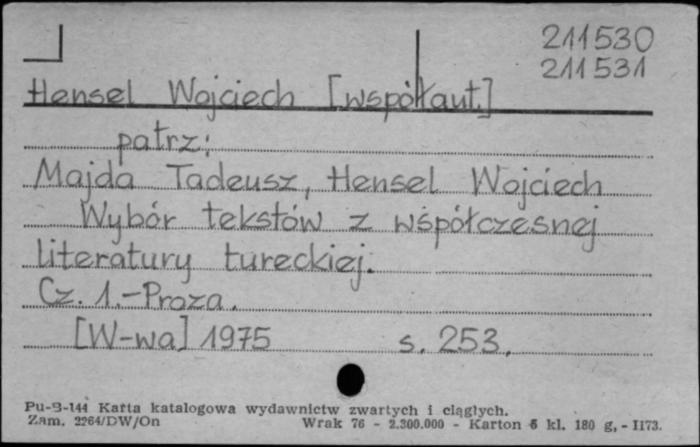 211530
211531
Hensel Wojciech [współaut.]
patrz:
Majda Tadeusz, Hensel Wojciech
Wybór tekstów z współczesnej
literatury tureckiej.
Cz. 1.-Proza.
[W-wa] 1975 s. 253.
Pu-B-144 Karta katalogowa wydawnictw zwartych i ciągłych.
Zam. 2264/DW/On Wrak 76 - 2.300.000 - Karton 5 kl. 180 g, - II73.